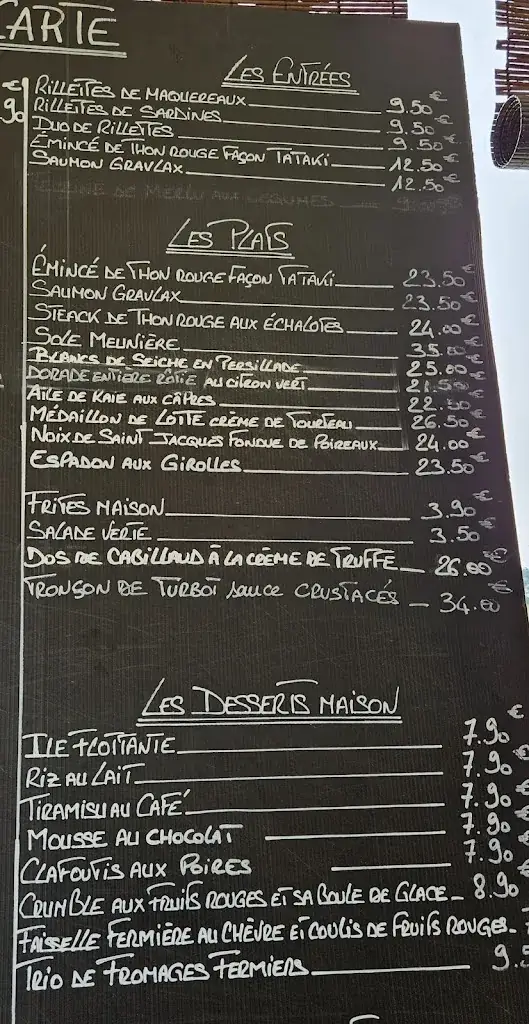 CARTE
LES ENTRÉES
€
90
RILLETTES DE MAQUEREAUX 9.50€
RILLETTES DE SARDINES 9.50€
DUO DE RILLETTES 9.50€
ÉMINCÉ DE THON ROUGE FAÇON TATAKI 12.50€
SAUMON GRAVLAX 12.50€
DE MERLU AUX LÉGUMES
LES PLATS
ÉMINCÉ DE THON ROUGE FAÇON TATAKI 23.50€
SAUMON GRAVLAX 23.50€
STEACK DE THON ROUGE AUX ÉCHALOTES 24.00€
SOLE MEUNIÈRE 35.00€
BLANCS DE SEICHE EN PERSILLADE 25.00€
DORADE ENTIÈRE RÔTIE AU CITRON VERT 21.50€
AILE DE RAIE AUX CÂPRES 22.50€
MÉDAILLON DE LOTTE CRÈME DE TOURTEAU 26.50€
NOIX DE SAINT-JACQUES FONDUE DE POIREAUX 24.00€
ESPADON AUX GIROLLES 23.50€
FRITES MAISON 3.90€
SALADE VERTE 3.50€
DOS DE CABILLAUD À LA CRÈME DE TRUFFE 26.00€
TRONSON DE TURBOT SAUCE CRUSTACÉS 34.00€
LES DESSERTS MAISON
ILE FLOTTANTE 7.90€
RIZ AU LAIT 7.90€
TIRAMISU AU CAFÉ 7.90€
MOUSSE AU CHOCOLAT 7.90€
CLAFOUTIS AUX POIRES 7.90€
CRUMBLE AUX FRUITS ROUGES ET SA BOULE DE GLACE 8.90€
FAISSELLE FERMIÈRE AU CHÈVRE ET COULIS DE FRUITS ROUGES
TRIO DE FROMAGES FERMIERS 9.5